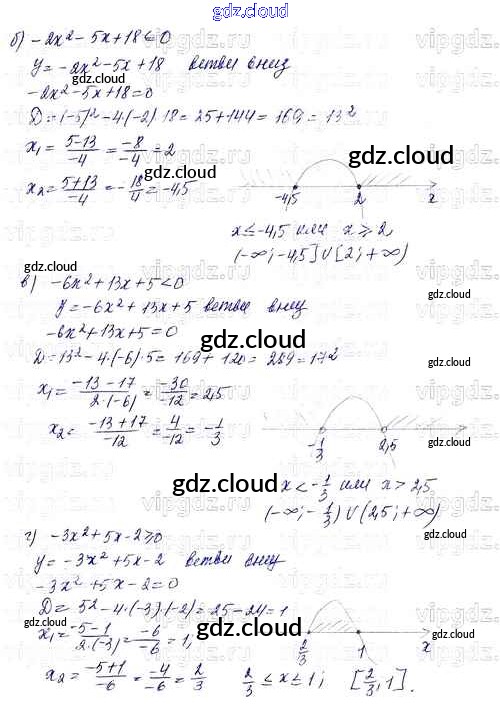 gdz.cloud
б) -2x² - 5x + 18 ≤ 0
y = -2x² - 5x + 18 ветви вниз
gdz.cloud
-2x² - 5x + 18 = 0
D = (-5)² - 4·(-2)·18 = 25 + 144 = 169 = 13²
gdz.cloud
x₁ = (5-13)/(-4) = (-8)/(-4) = 2
gdz.cloud
x₂ = (5+13)/(-4) = -18/4 = -4,5
-4,5 2 x
gdz.cloud
x ≤ -4,5 или x ≥ 2
(-∞; -4,5] ∪ [2; +∞)
gdz.cloud
в) -6x² + 13x + 5 < 0
gdz.cloud
y = -6x² + 13x + 5 ветви вниз
-6x² + 13x + 5 = 0
gdz.cloud
D = 13² - 4·(-6)·5 = 169 + 120 = 289 = 17²
gdz.cloud
x₁ = (-13-17)/(2·(-6)) = (-30)/(-12) = 2,5
x₂ = (-13+17)/(-12) = 4/(-12) = -1/3
gdz.cloud
-1/3 2,5
gdz.cloud
x < -1/3 или x > 2,5
(-∞; -1/3) ∪ (2,5; +∞)
gdz.cloud
г) -3x² + 5x - 2 ≥ 0
y = -3x² + 5x - 2 ветви вниз
gdz.cloud
-3x² + 5x - 2 = 0
D = 5² - 4·(-3)·(-2) = 25 - 24 = 1
gdz.cloud
x₁ = (-5-1)/(2·(-3)) = (-6)/(-6) = 1;
gdz.cloud
2/3 1 x
x₂ = (-5+1)/(-6) = (-4)/(-6) = 2/3
2/3 ≤ x ≤ 1; [2/3; 1].
gdz.cloud